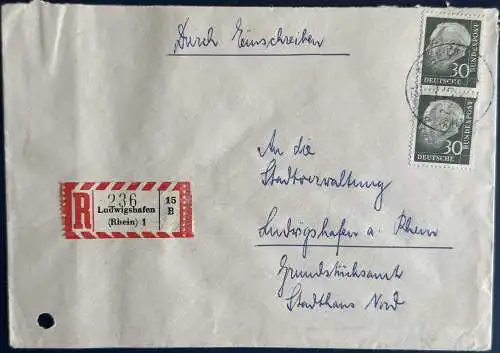 Durch Einschreiben
30
DEUTSCHE
BUNDESPOST
30
DEUTSCHE
BUNDESPOST
An die
Stadtverwaltung
Ludwigshafen a. Rhein
Grundstücksamt
Stadthaus Nord
R
236
Ludwigshafen
(Rhein) 1
15
B